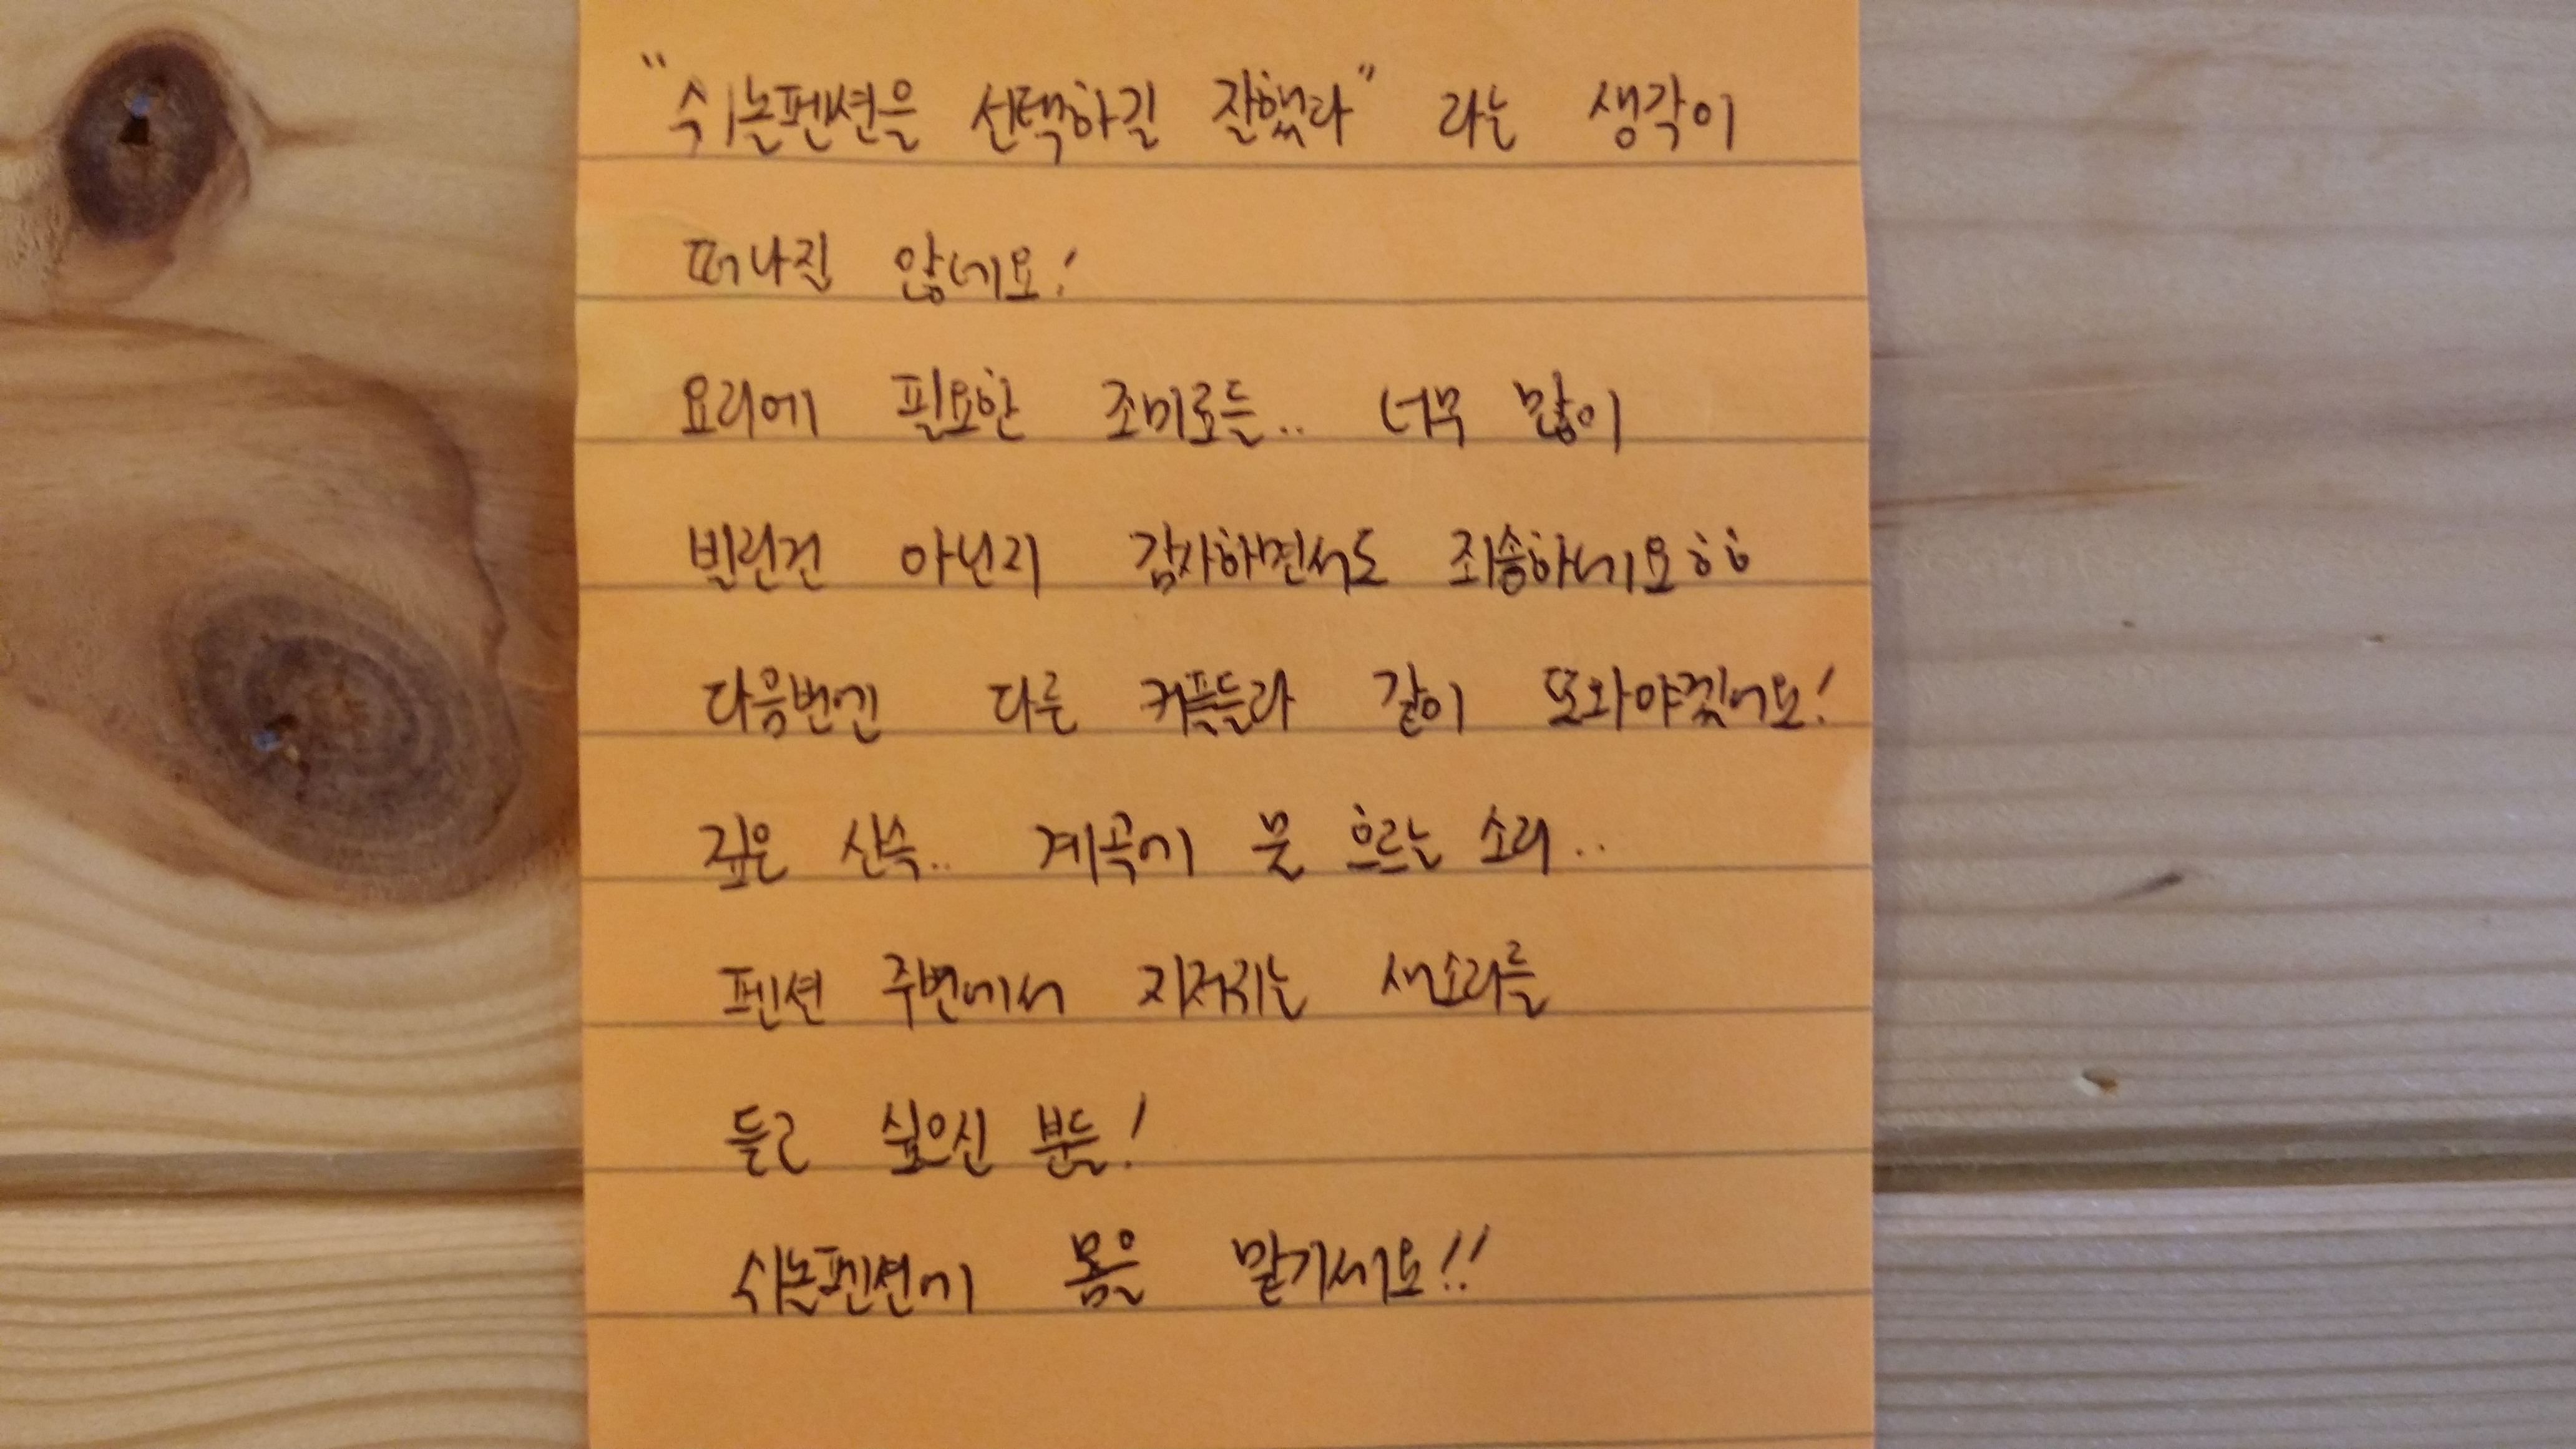 "쉬는펜션을 선택하길 잘했다" 라는 생각이
떠나질 않네요!
요리에 필요한 조미료들.. 너무 많이
빌린건 아닌지 감사하면서도 죄송하네요ㅎㅎ
다음번엔 다른 커플들과 같이 또와야겠어요!
깊은 산속.. 계곡에 물 흐르는 소리..
펜션 주변에서 지저귀는 새소리를
듣고 싶으신 분들!
쉬는펜션에 몸을 맡기세요!!